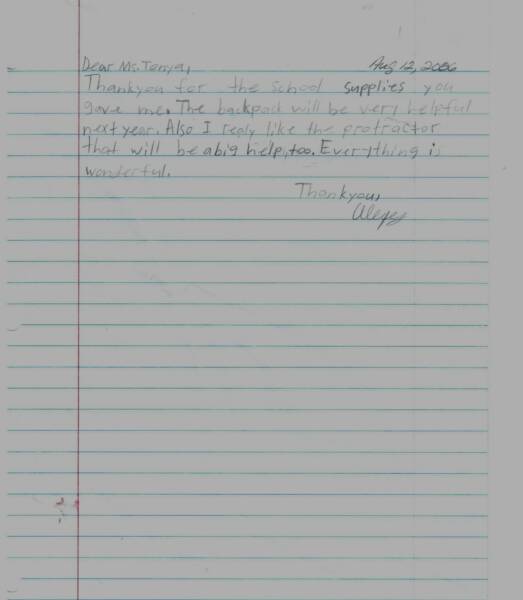 Dear Ms. Tonya, Aug 12, 2006
Thankyou for the school supplies you
gave me. The backpack will be very helpful
next year. Also I reply like the protractor
that will be a big help, too. Everything is
wonderful.
Thankyou,